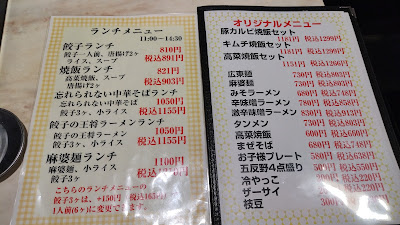 ランチメニュー
11:00〜14:30
餃子ランチ 810円
餃子一人前、唐揚げ2ヶ 税込891円
ライス、スープ
焼飯ランチ 821円
高菜焼飯、スープ 税込903円
唐揚げ2ヶ
忘れられない中華そばランチ
忘れられない中華そば 1050円
餃子3ヶ、小ライス 税込1155円
餃子の王将ラーメンランチ
餃子の王将ラーメン 1050円
餃子3ヶ、小ライス 税込1155円
麻婆麺ランチ 1100円
麻婆麺、小ライス
餃子3ヶ
こちらのランチメニューの
餃子3ヶは、+150円
1人前(6ヶ)に変更できます。
オリジナルメニュー
豚カルビ焼飯セット
1181円 税込1299円
キムチ焼飯セット
1181円 税込1299円
高菜焼飯セット
税込1266円
広東麺 730円 税込803円
麻婆麺 730円 税込803円
みそラーメン 680円 税込748円
辛味噌ラーメン 780円 税込858円
激辛味噌ラーメン 税込913円
タンメン 730円 税込803円
高菜焼飯 600円 税込660円
まぜそば 680円 税込748円
お子様プレート 580円 税込638円
五反野4点盛り 500円 税込550円
冷やっこ 税込220円
ザーサイ 税込220円
枝豆 300円